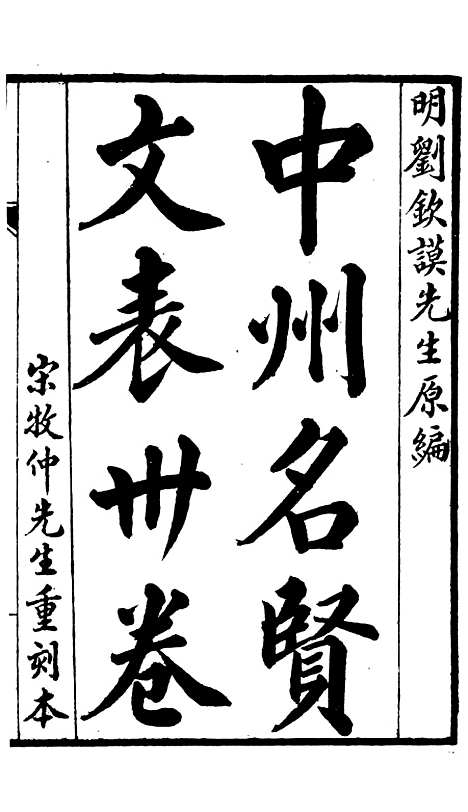 明劉欽謨先生原編
中州名賢
文表卅卷
宋牧仲先生重刻本